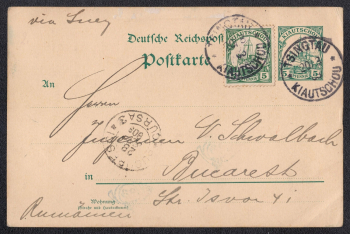 via Suez
Deutsche Reichspost
Postkarte
KIAUTSCHOU
5
TSINGTAU
KIAUTSCHOU
TSINGTAU
KIAUTSCHOU
An
Herrn
Ingenieur V. Schwalbach
in Bucarest
Wohnung
(Straße und Hausnummer)
Str. Isvor 41
Rumänien